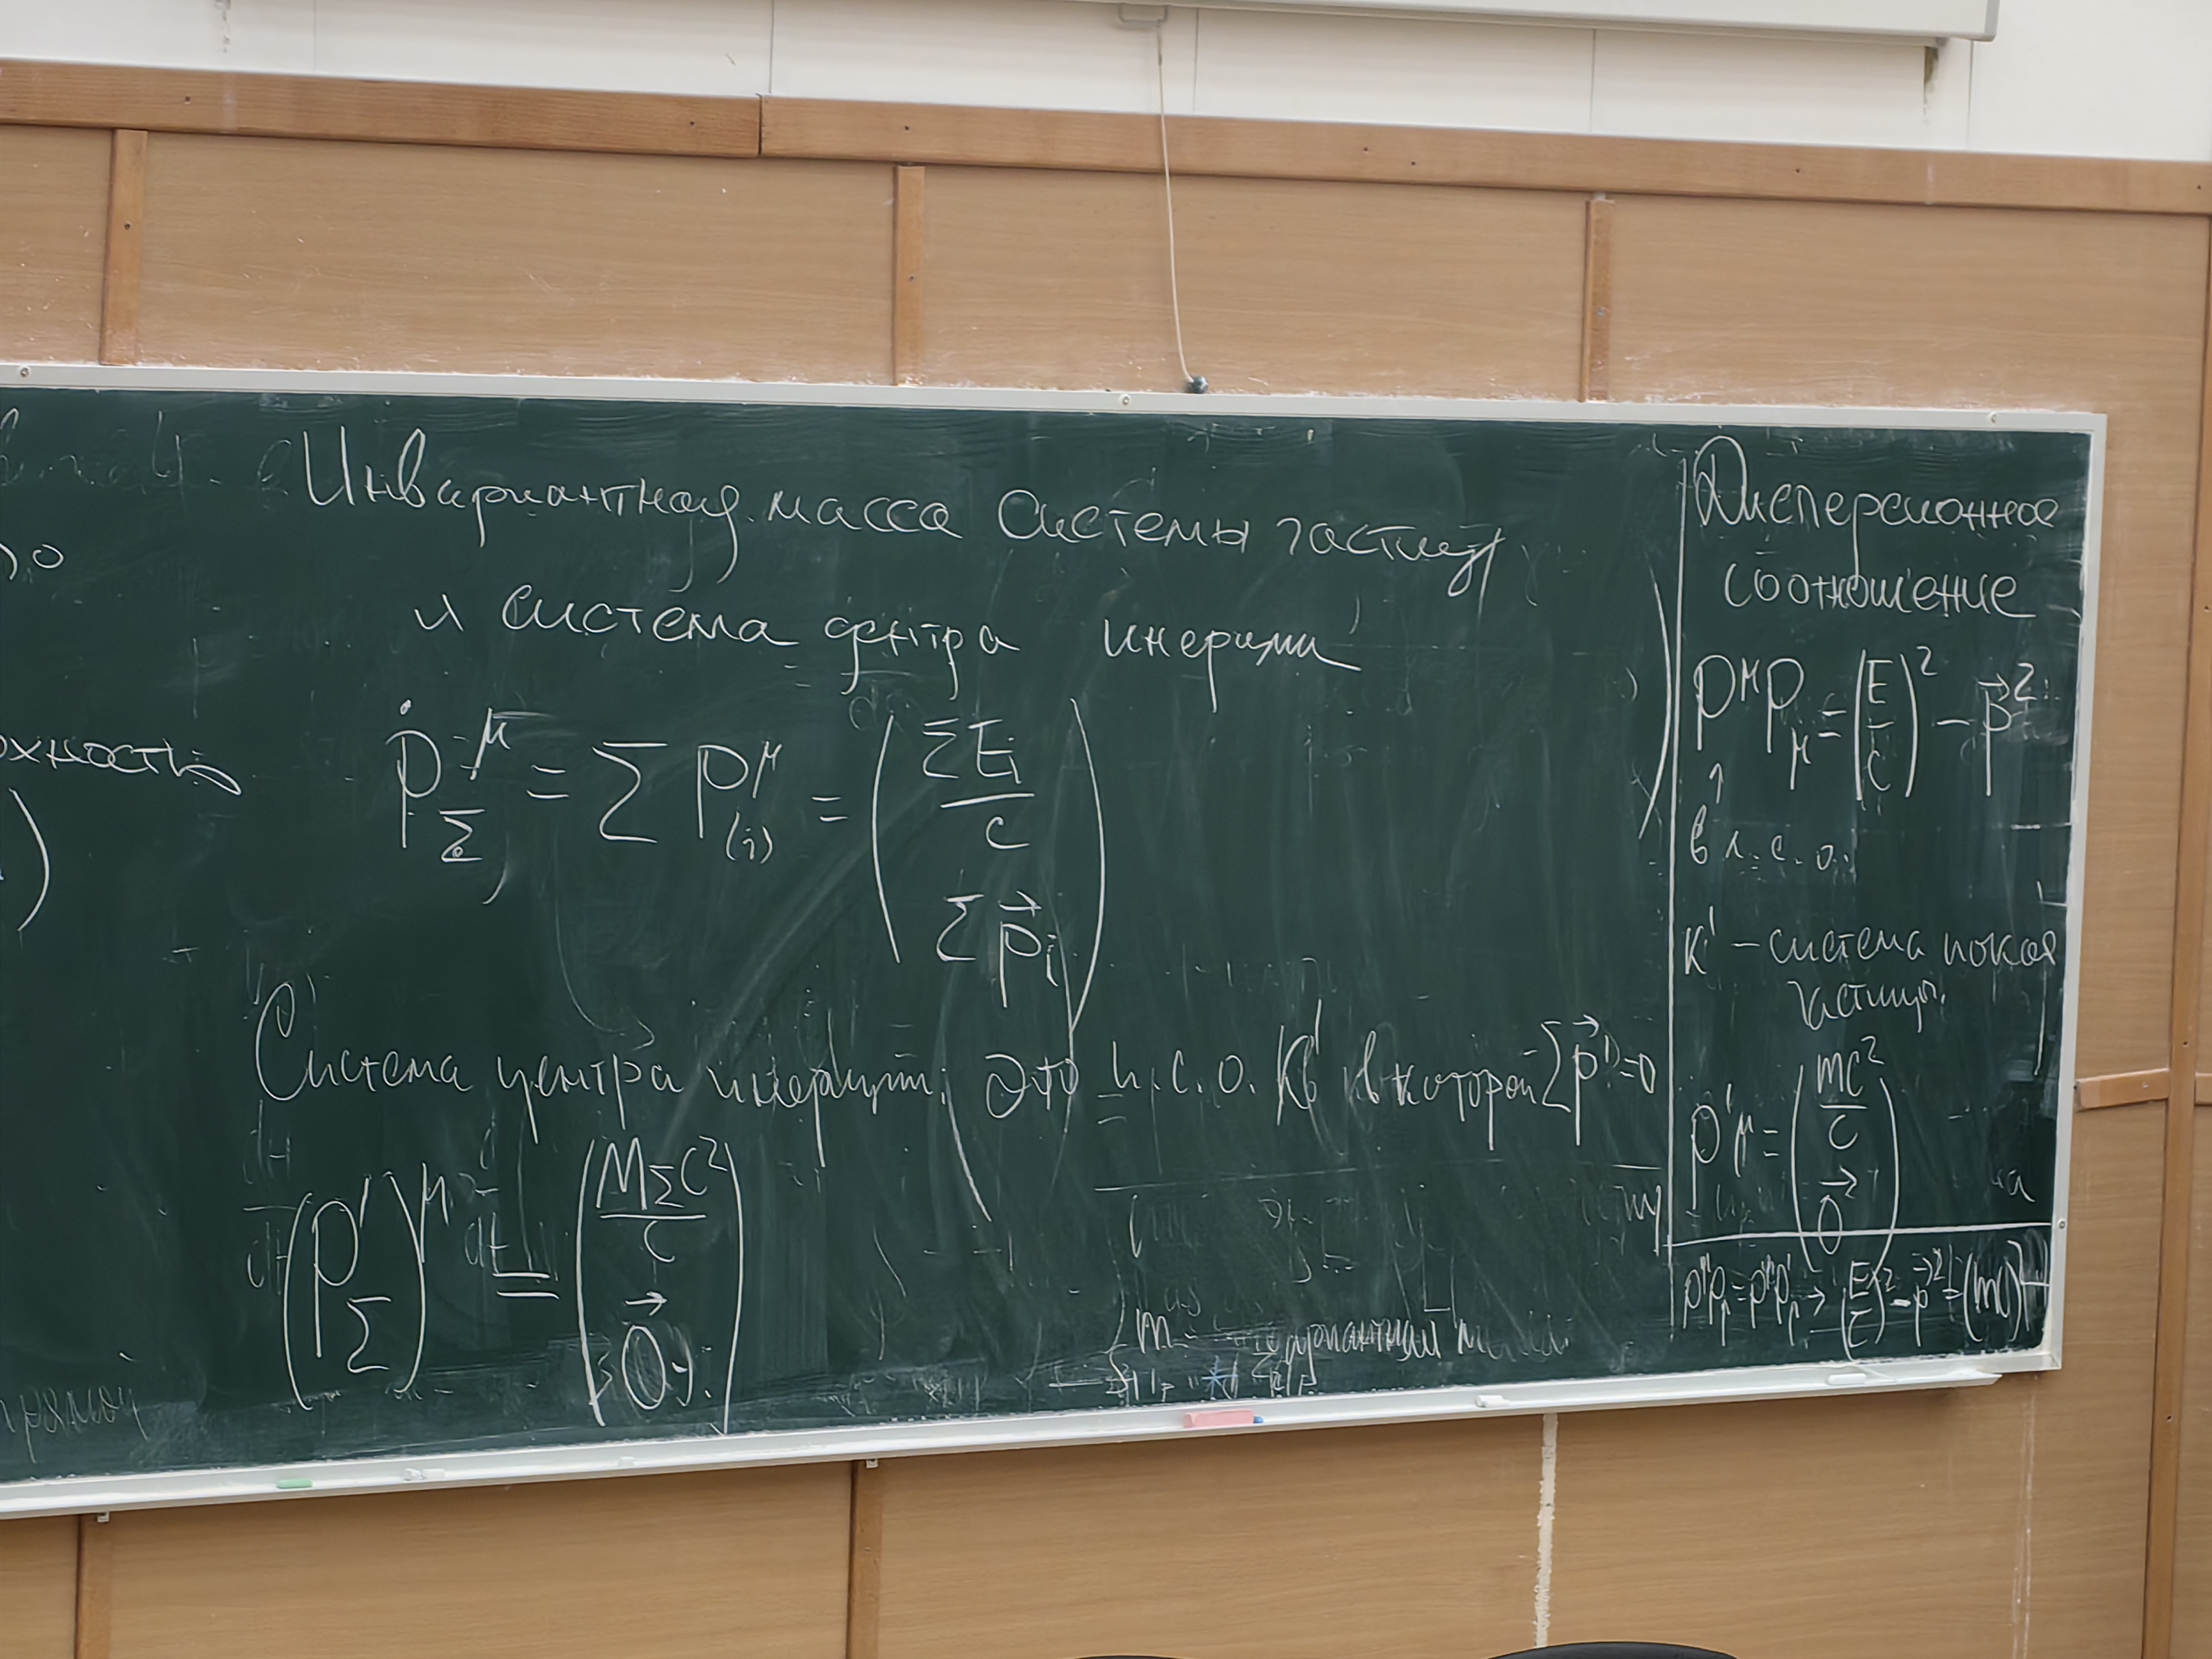 Инвариантная масса системы частиц
и система центра инерции
P^μ_Σ = Σ P^μ_(i) = ( ΣE_i / c ; Σ\vec{p}_i )
Система центра инерции: Это и.с.о. K' в которой Σ\vec{p}' = 0
(P'_Σ)^μ = ( M_Σ c² / c ; \vec{0} )
Дисперсионное
соотношение
P^μ P_μ = (E/c)² - \vec{p}²
↑
в л.с.о.
K' – система покоя
частицы
P'^μ = ( mc² / c ; \vec{0} )
P^μ P_μ = P'^μ P'_μ → (E/c)² - \vec{p}² = (mc)²